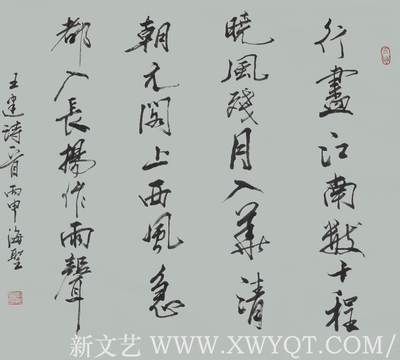 行盡江南數十程
曉風殘月入華清
朝元閣上西風急
都入長楊作雨聲
王建詩一首丙申海聖
新文艺 WWW.XWYQT.COM